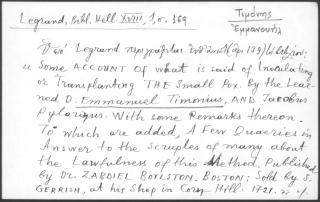 Legrand, Bibl. Hell. XVIII, 1, σ. 169
Τιμόνης
Ἐμμανουήλ
Ὑπὸ Legrand περιγράφεται
"Some ACCOUNT of what is said of Inoculating
or Transplanting THE Small Pox. By the Lear-
ned D. Emmanuel Timonius, AND Jacobus
Pylarinus. With some Remarks thereon.
To which are added, A Few Quaeries in
Answer to the Scruples of many about
the Lawfulness of this Method. Published
by Dr. ZABDIEL BOYLSTON. BOSTON: Sold by S.
GERRISH, at his Shop in Corn Hill. 1721.